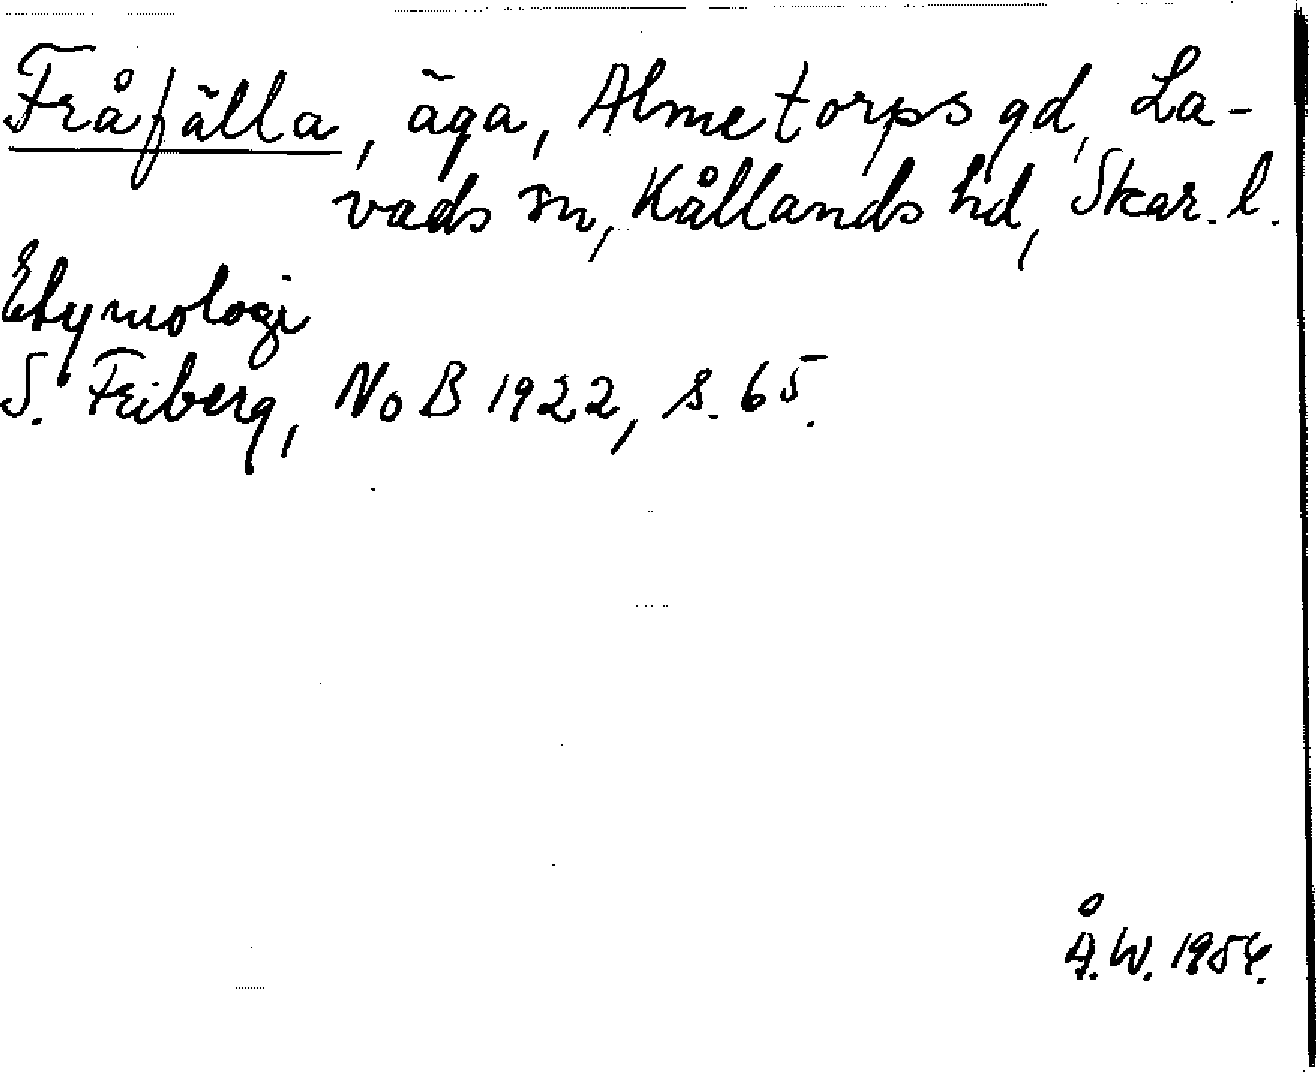 Fråfälla, äga, Almetorps gd, La-
vads sn, Kållands hd, Skar. l.
Etymologi
S. Feiberg, NoB 1922, s. 65.
Å.W. 1954.